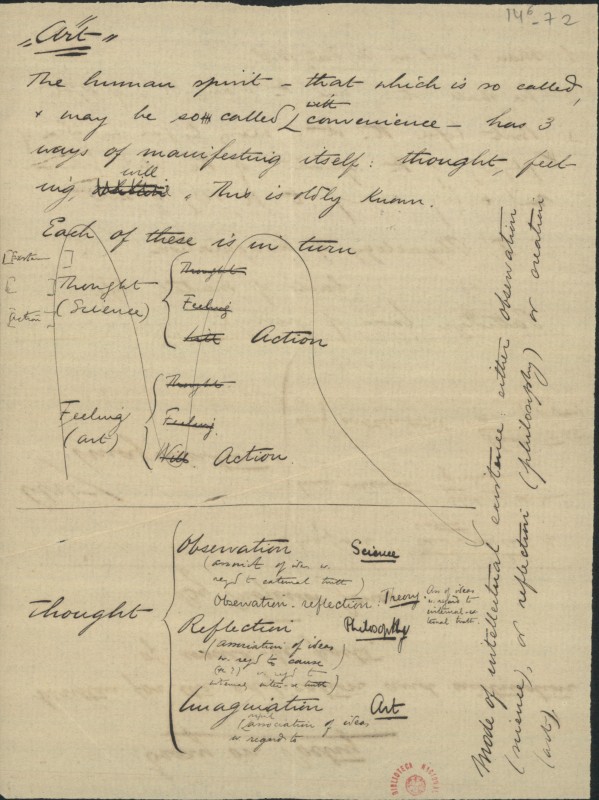 14⁶-72
"Art"
The human spirit – that which is so called,
& may be so called with convenience – has 3
ways of manifesting itself: thought, feel
ing, will. This is oldly known.
Each of these is in turn
Thought
(Science)
Thought
Feeling
Will Action
[Action]
Feeling
(art)
Thought
Feeling
Will Action.
Thought
Observation Science
(associat. of ideas w.
regd to external truth)
Observation. reflection. Theory.
Ass of ideas
w. regard to
internal-ex
ternal truth.
Reflection Philosophy
(association of ideas
w. regd to cause
or regd to
truth)
Imagination Art
(association of ideas
w. regard to
Mode of intellectual existence: either observation
(science), or reflection (philosophy) or creation
(art).
BIBLIOTECA NACIONAL